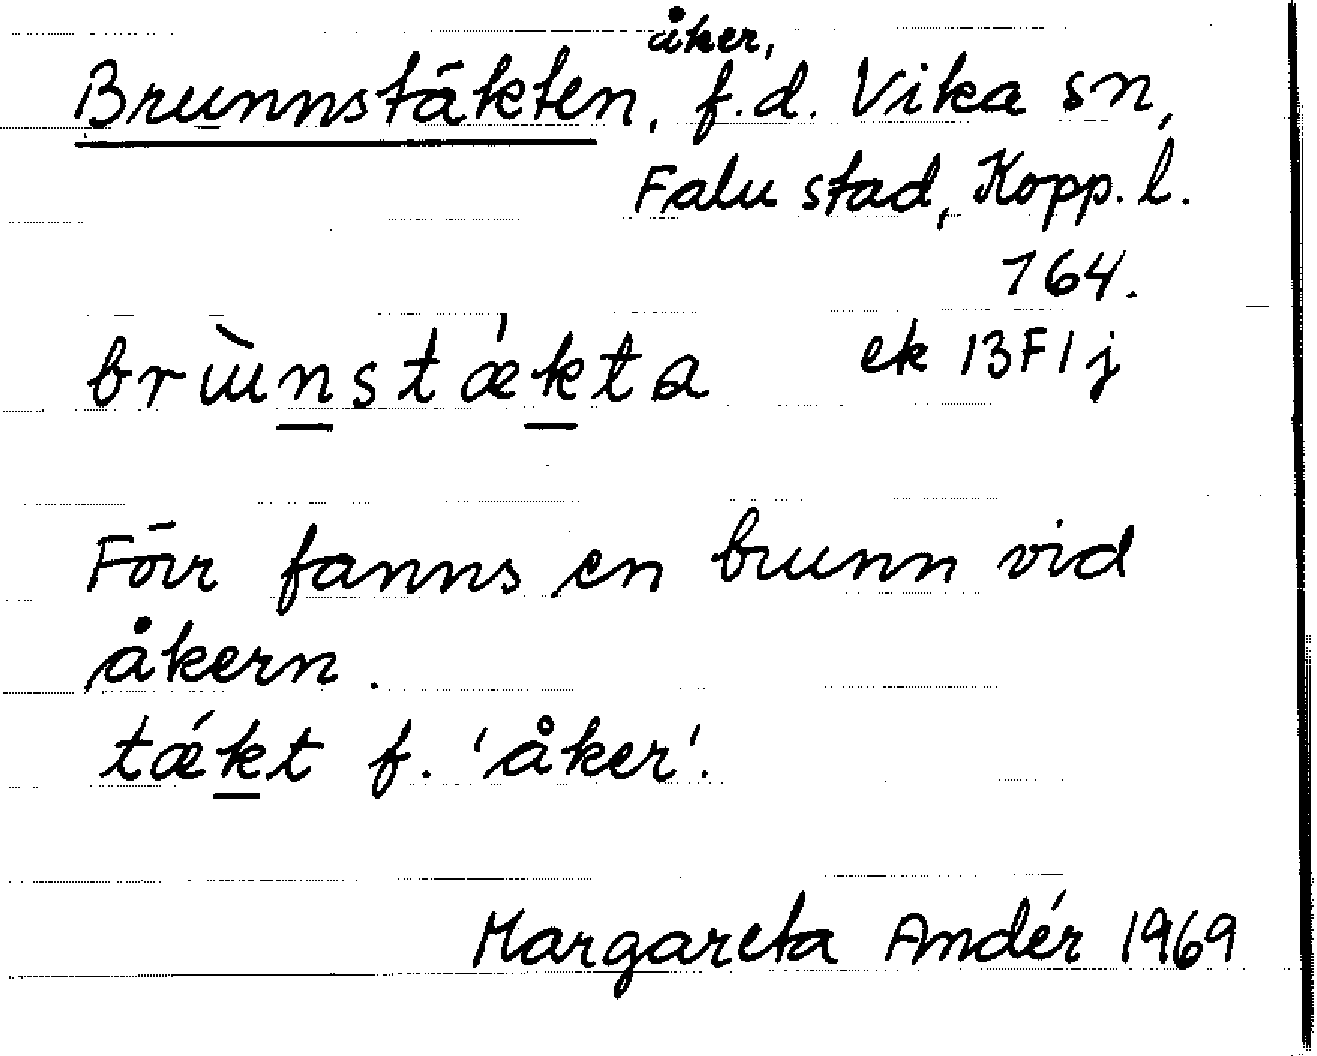 Brunnstäkten, åker, f.d. Vika sn,
Falu stad, Kopp. l.
164.
brùnstǽkta ek 13F1j
Förr fanns en brunn vid
åkern.
tǽkt f. 'åker'.
Margareta Andér 1969